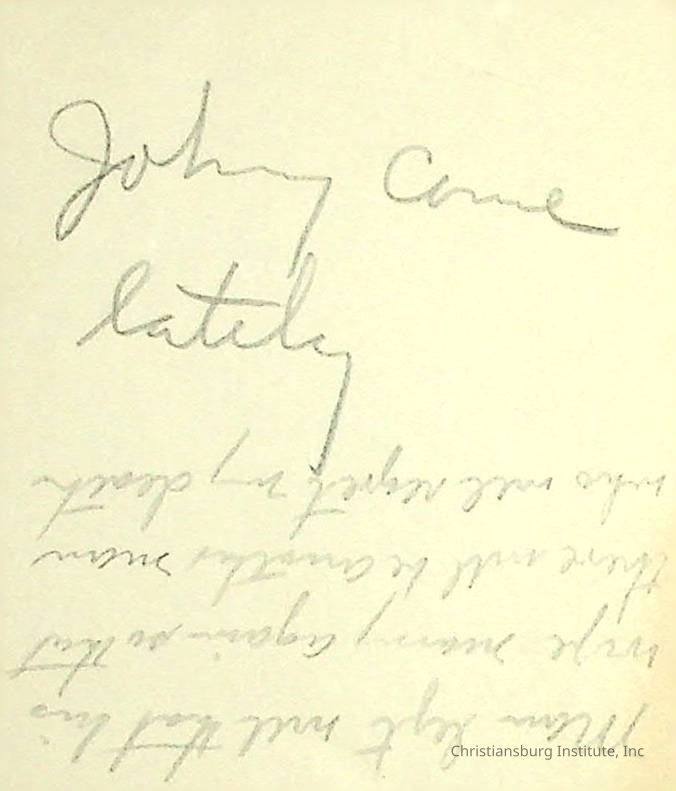 Johny Come
lately
Man left will that his
wife marry again so that
there will be another man
who will regret my death
Christiansburg Institute, Inc